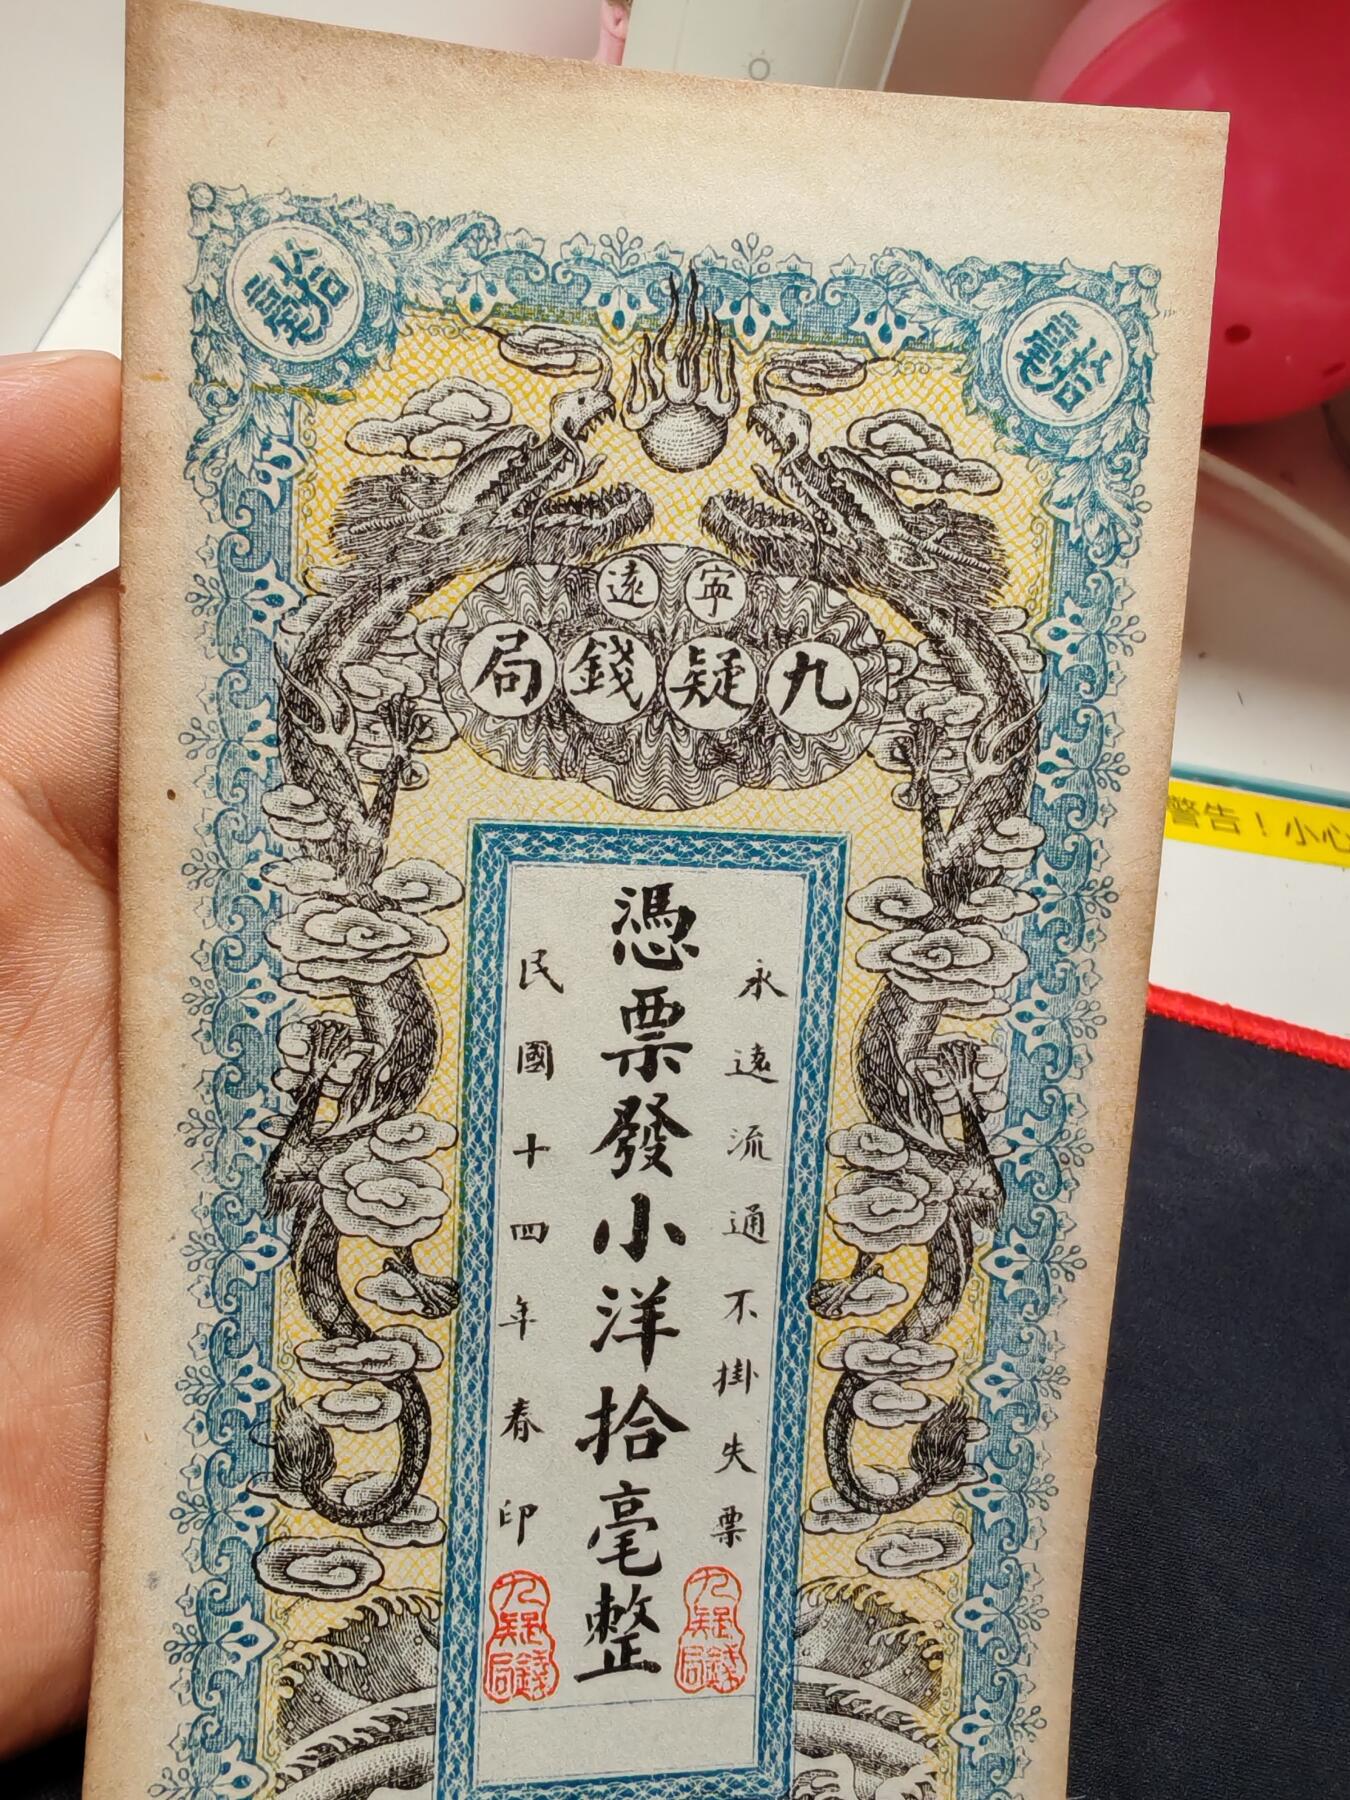 拾毫
拾毫
寧遠
九疑錢局
永遠流通不掛失票
憑票發小洋拾毫整
民國十四年春印
九疑錢局
九疑錢局
警告！小心